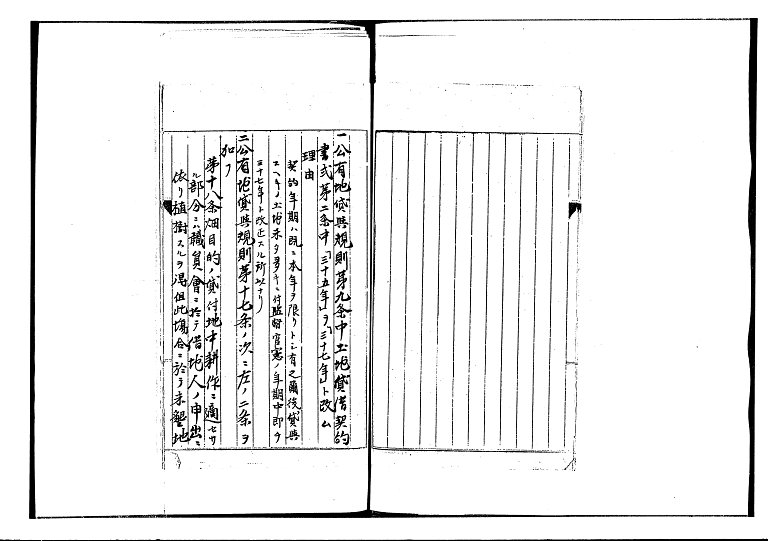 一公有地貸與規則第九条中土地貸借契約
書式第二条中「三十五年」ヲ「三十七年」ト改ム
理由
契約年期ハ既ニ本年ヲ限リトシ有之爾後貸與
スヘキノ土地未タ多キニ付監督官憲ノ年期中即チ
三十七年ト改正スル所以ナリ
二公有地貸與規則第十七条ノ次ニ左ノ二条ヲ
加フ
第十八条畑目的ノ貸付地中耕作ニ適セサ
ル部分ニハ職員會ニ於テ借地人ノ申出ニ
依リ植樹スルヲ得但此場合ニ於テ未墾地